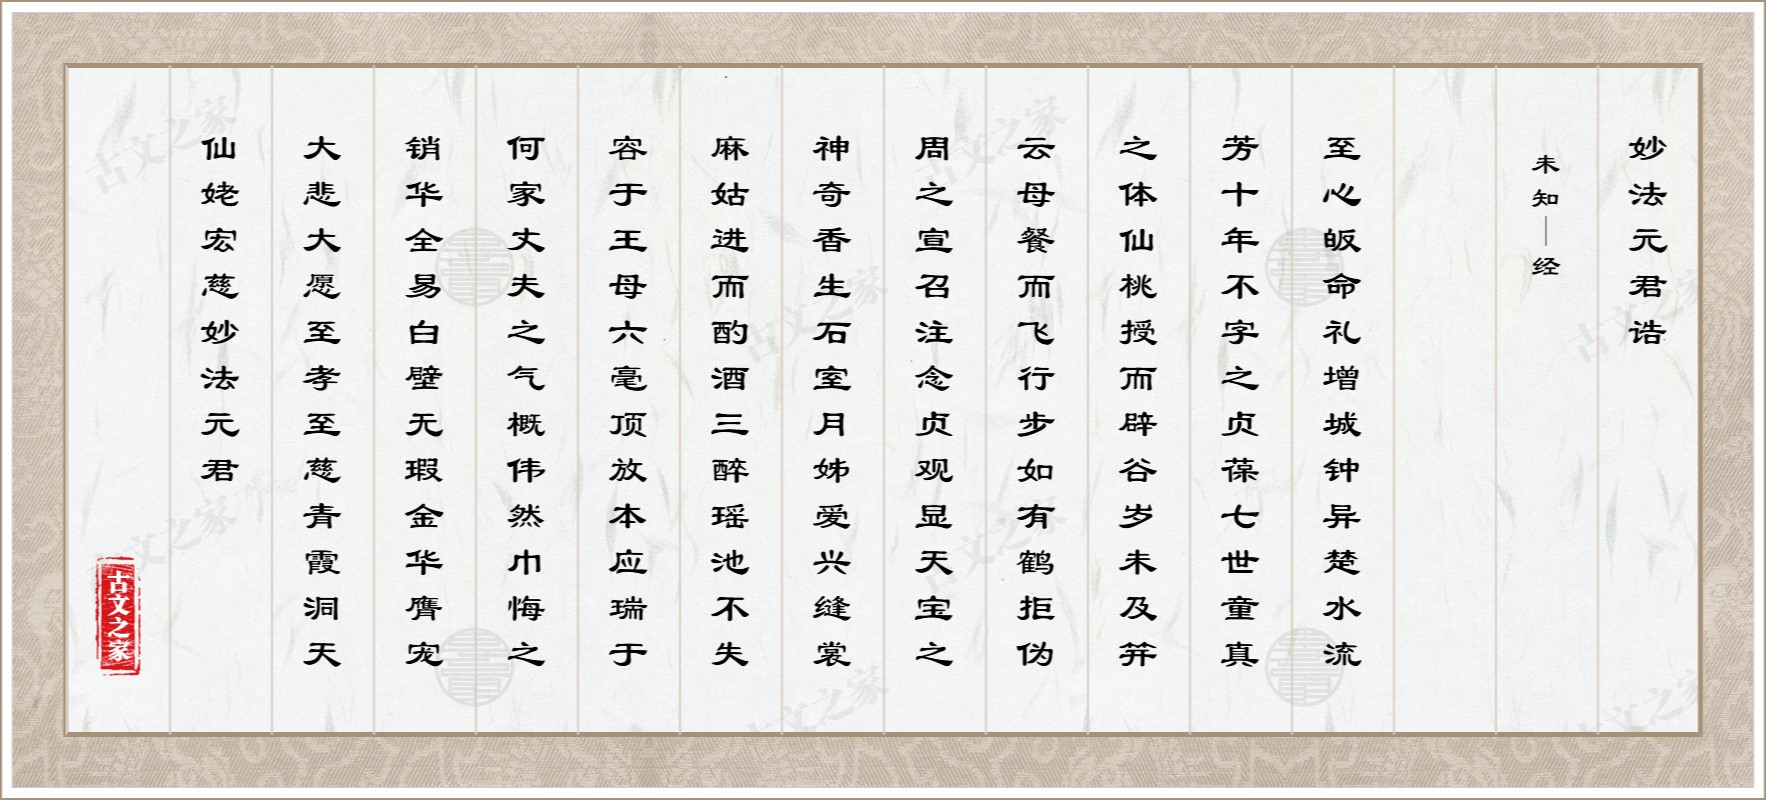 妙法元君诰
未知｜经
至心皈命礼增城钟异楚水流
芳十年不字之贞葆七世童真
之体仙桃授而辟谷岁未及笄
云母餐而飞行步如有鹤拒伪
周之宣召注念贞观显天宝之
神奇香生石室月姊爱兴缝裳
麻姑进而酌酒三醉瑶池不失
容于王母六毫顶放本应瑞于
何家丈夫之气概伟然巾悔之
销华全易白璧无瑕金华膺宠
大悲大愿至孝至慈青霞洞天
仙姥宏慈妙法元君
古文之家